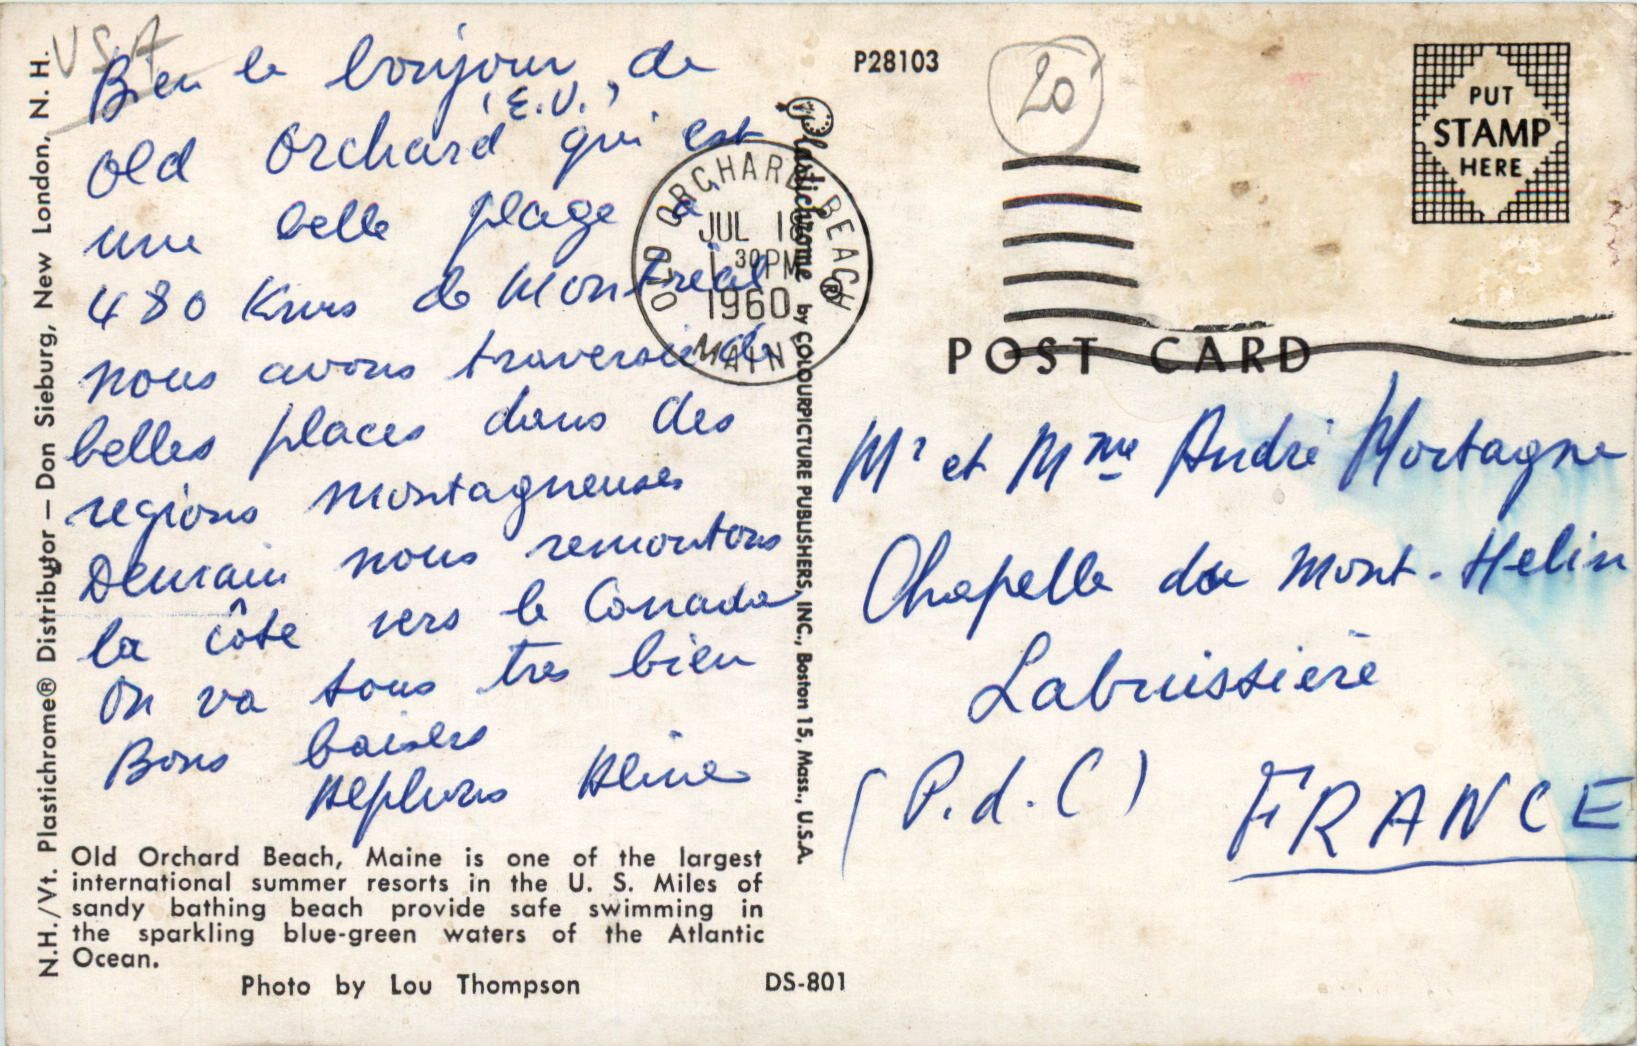 USA
Bien le bonjour de
(E.U.)
Old Orchard qui est
une belle plage à
480 Kms de Montreal
nous avons traversé de
belles places dans des
regions montagneuses
Demain nous remontons
la côte vers le Canada
On va tous tres bien
Bons baisers
Aline
Old Orchard Beach, Maine is one of the largest
international summer resorts in the U. S. Miles of
sandy bathing beach provide safe swimming in
the sparkling blue-green waters of the Atlantic
Ocean.
Photo by Lou Thompson
DS-801
N.H./Vt. Plastichrome® Distributor — Don Sieburg, New London, N. H.
Plastichrome ® by COLOURPICTURE PUBLISHERS, INC., Boston 15, Mass., U.S.A.
OLD ORCHARD BEACH
JUL
1 30 PM
1960
MAINE
P28103
20
PUT
STAMP
HERE
POST CARD
Mr et Mme André Mortagne
Chapelle du Mont-Helin
Labuissière
(P.d.C)
FRANCE